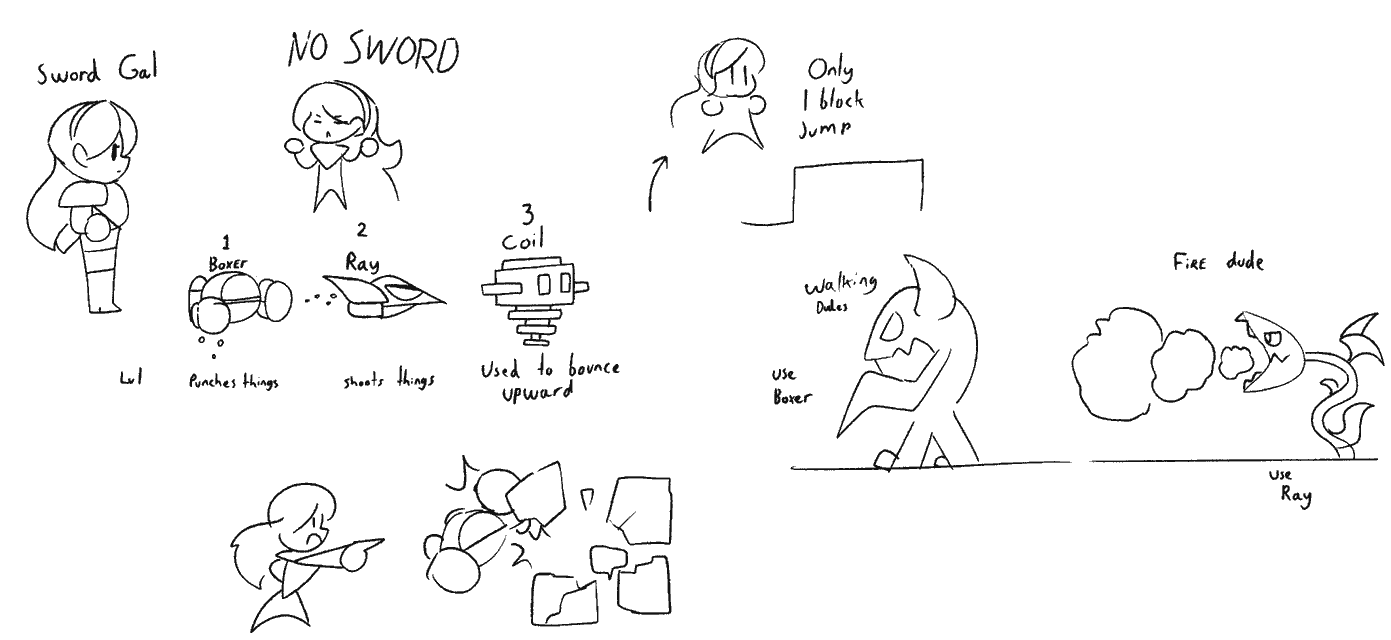 Sword Gal
NO SWORD
Only
1 block
Jump
1
Boxer
2
Ray
3
Coil
Lvl
Punches things
shoots things
Used to bounce
upward
Walking
Dudes
use
Boxer
Fire dude
use
Ray